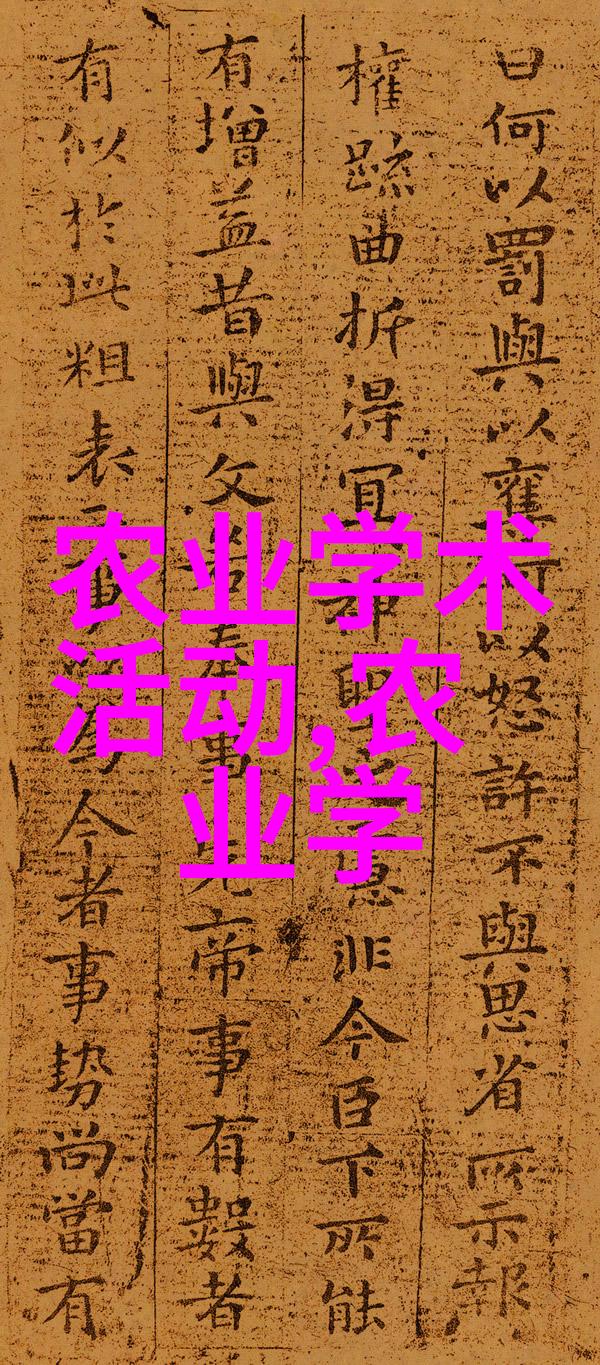 曰何以罰與以雍以怒許不與思省所示報
權疏曲折得宜神聖恩非今臣下所能
有增益昔與文若奉事先帝事有數者
有似於此粗表今者事勢尚當有
农业学术
活动,农
业学